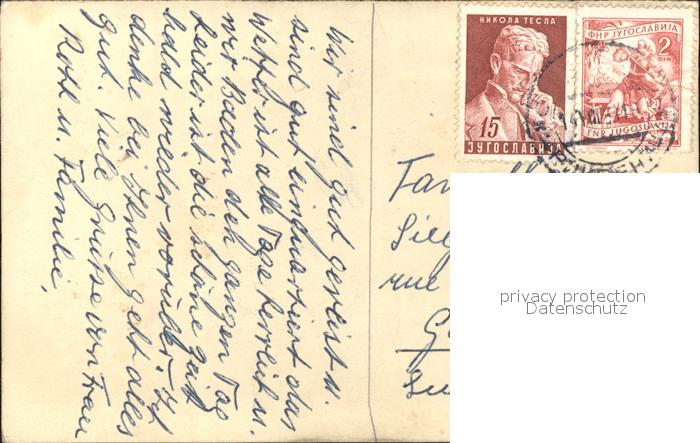 Wir sind gut gereist u.
sind gut einquartiert das
Wetter ist alle Tage herrlich u.
wir Baden den ganzen Tag
Leider ist die schöne Zeit
bald wieder vorüber. Ich
denke bei Ihnen geht alles
gut. Viele Grüsse von Frau
Roth u. Familie,
НИКОЛА ТЕСЛА
15
ЈУГОСЛАВИЈА
ФНР ЈУГОСЛАВИЈА
2
DIN
FNR JUGOSLAVIJA
Fam
rue
privacy protection
Datenschutz